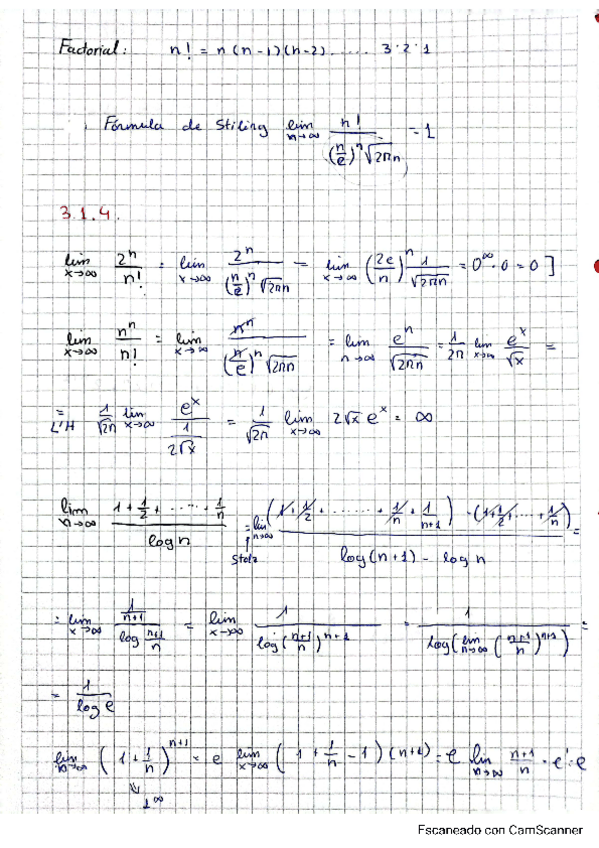 Factorial: n! = n(n-1)(n-2)...... 3·2·1
Fórmula de Stiling lim n→∞ n! / ((n/e)^n √2πn) = 1
3.1.4.
lim x→∞ 2^n/n! = lim x→∞ 2^n / ((n/e)^n √2πn) = lim x→∞ (2e/n)^n 1/√2πn = 0^∞ · 0 = 0 ]
lim x→∞ n^n/n! = lim x→∞ n^n / ((n/e)^n √2πn) = lim n→∞ e^n/√2πn = 1/2π lim x→∞ e^x/√x =
= L'H 1/√2π lim x→∞ e^x / (1/2√x) = 1/√2π lim x→∞ 2√x e^x = ∞
lim n→∞ (1 + 1/2 + ...... + 1/n) / log n = Stolz lim n→∞ ((1 + 1/2 + ........ + 1/n + 1/n+1) - (1 + 1/2 + ... + 1/n)) / (log(n+1) - log n) =
= lim x→∞ (1/n+1) / (log n+1/n) = lim x→∞ 1 / log(n+1/n)^n+1 = 1 / log(lim n→∞ (n+1/n)^n+1) =
= 1/log e
lim n→∞ (1 + 1/n)^n+1 = e lim x→∞ (1 + 1/n - 1)(n+1) = e lim n→∞ n+1/n = e^1 = e
1^∞
Escaneado con CamScanner